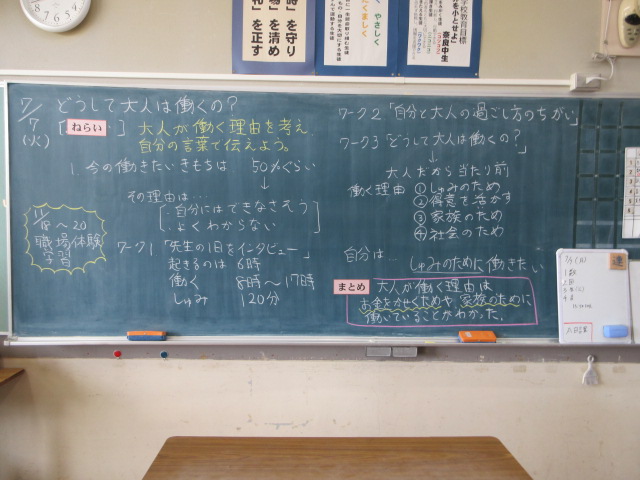 時」を守り
場」を清め
礼」を正す
やさしく
たくましく
学校教育目標
奈良中生
7/7(火)
どうして大人は働くの?
[ねらい…] 大人が働く理由を考え
自分の言葉で伝えよう。
1. 今の働きたいきもちは 50%ぐらい
↓
その理由は…
・自分にはできなさそう
・よくわからない
11/18〜20
職場体験
学習
ワーク1 「先生の1日をインタビュー」
起きるのは 6時
働く 8時〜17時
しゅみ 120分
ワーク2 「自分と大人の過ごし方のちがい」
ワーク3 「どうして大人は働くの?」
↓
大人だから当たり前
働く理由 ①しゅみのため
②得意を活かす
③家族のため
④社会のため
自分は… しゅみのために働きたい
まとめ 大人が働く理由は
お金をかせぐためや、家族のために
働いていることがわかった。